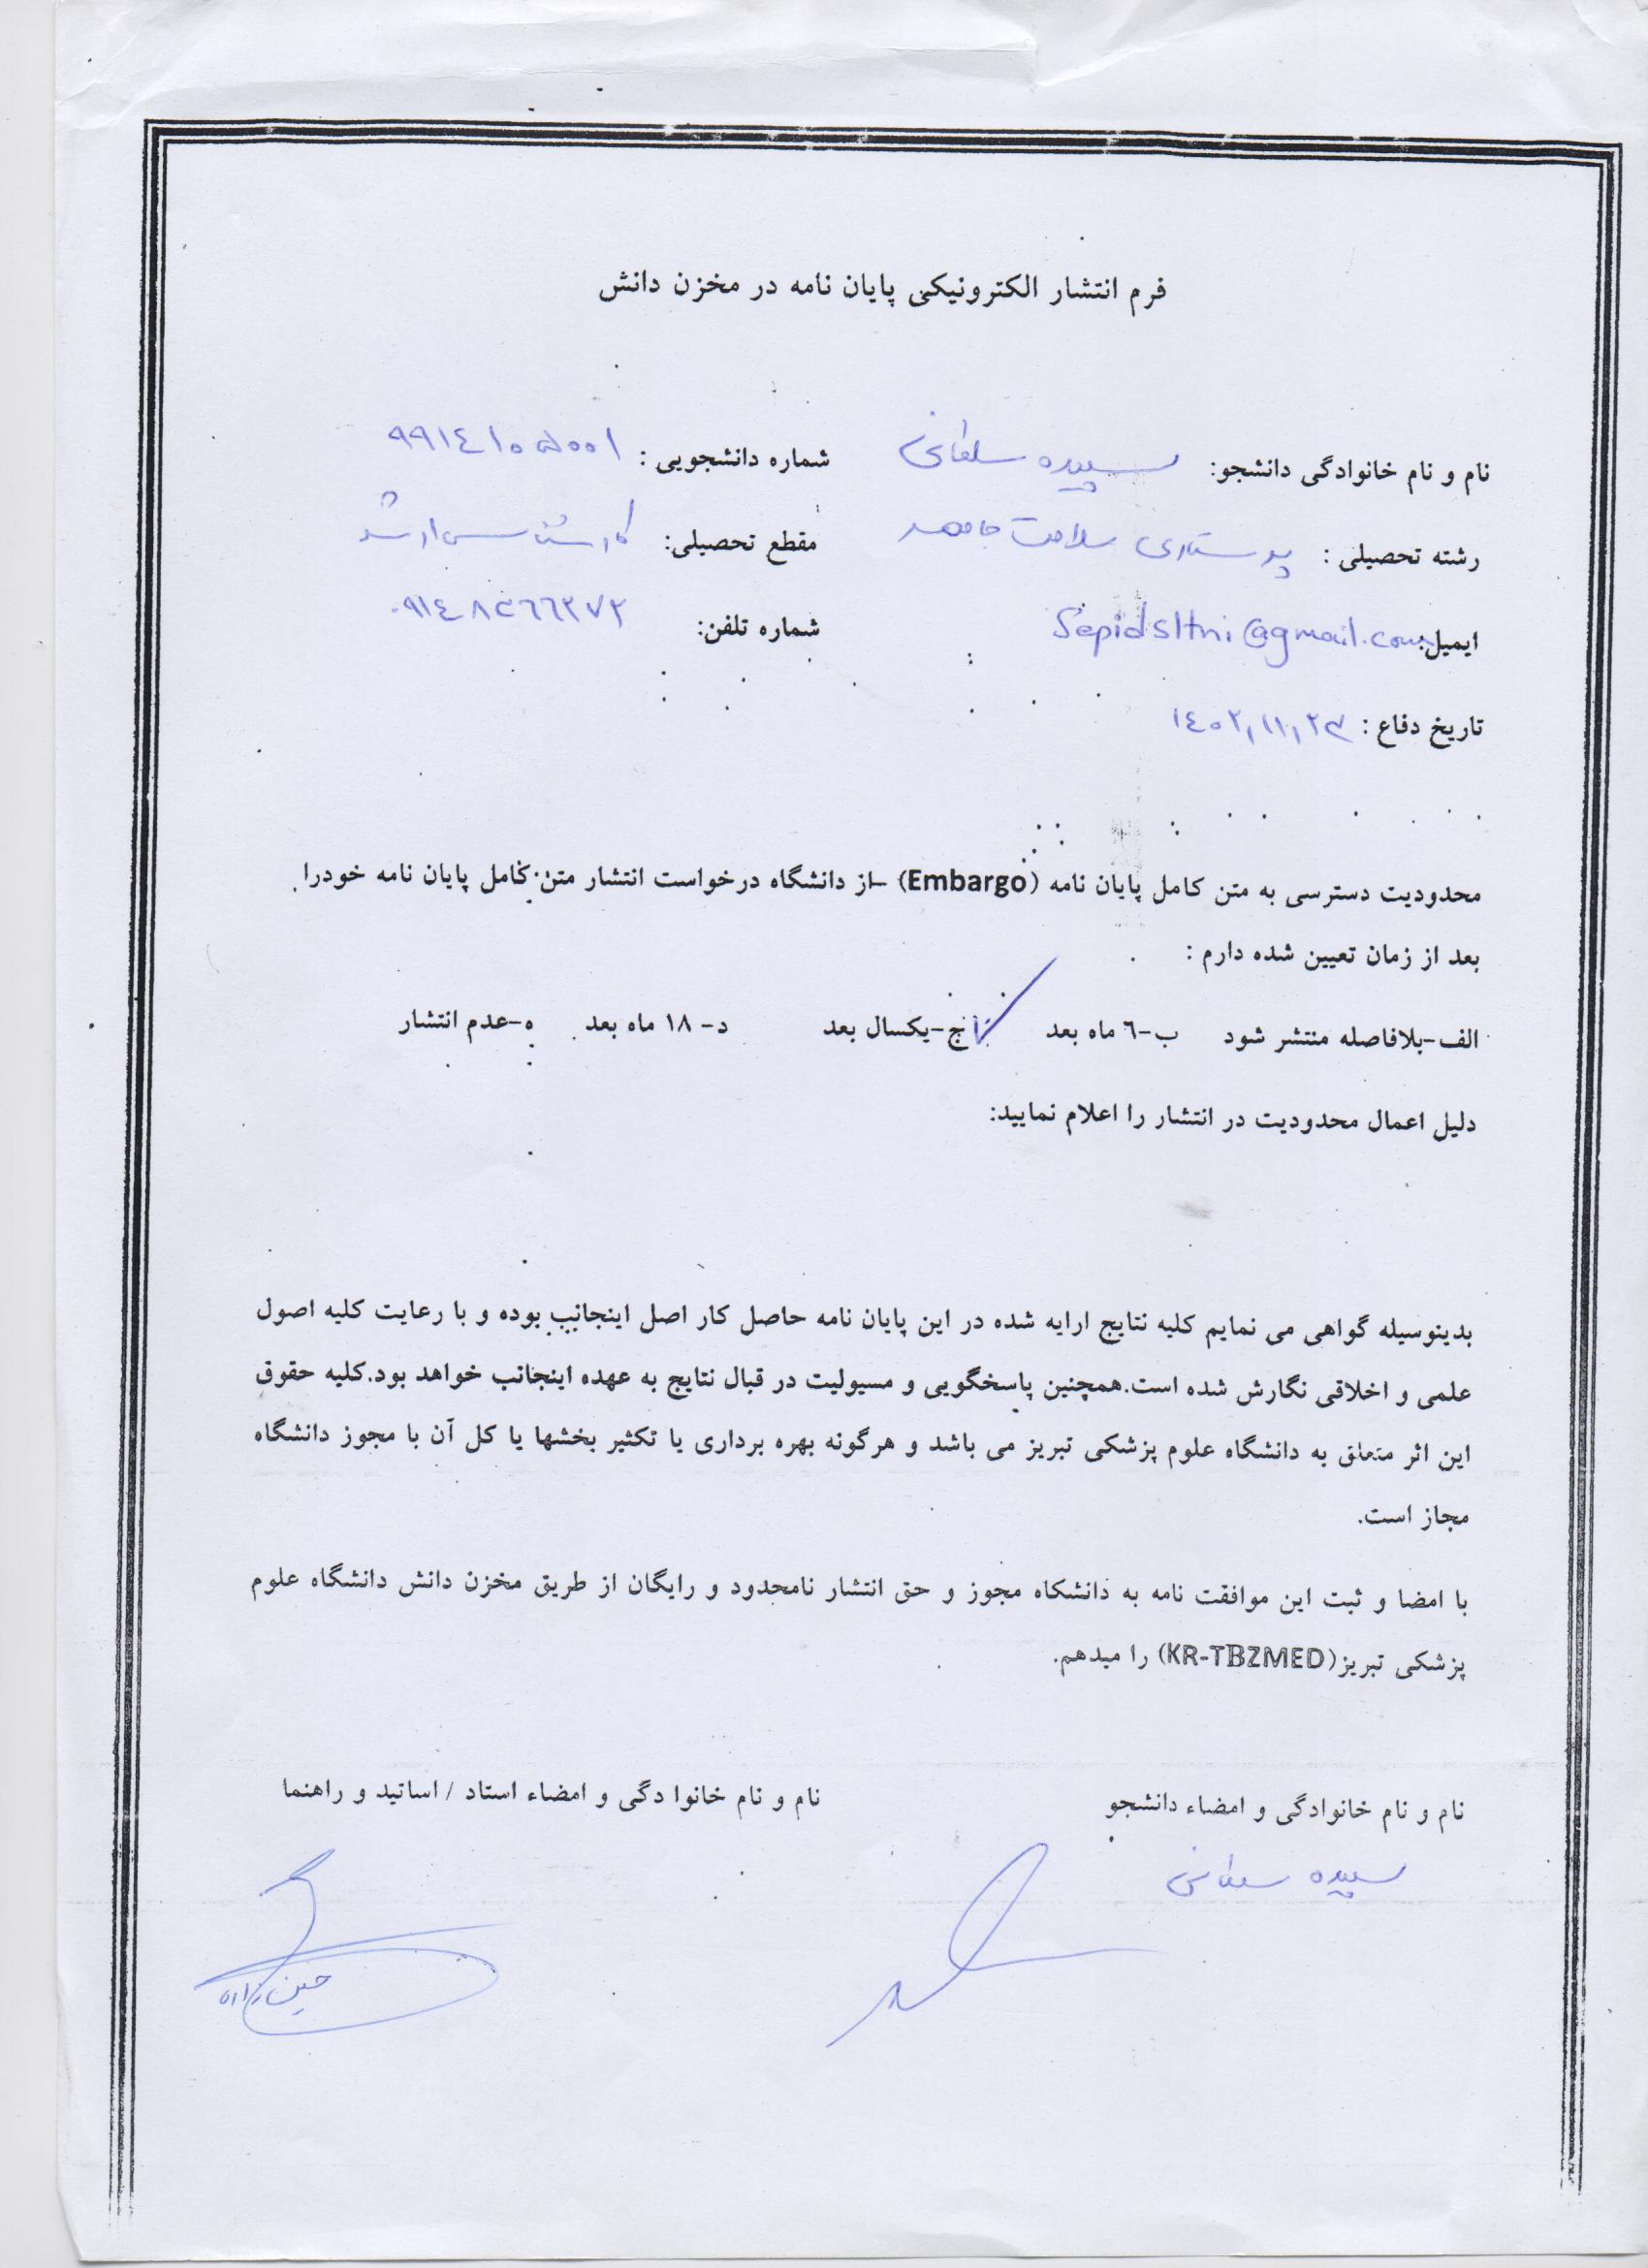 فرم انتشار الکترونیکی پایان نامه در مخزن دانش
نام و نام خانوادگی دانشجو: سپیده سلطانی شماره دانشجویی : ۹۹۱٤۱۰۵۰۰۱
رشته تحصیلی : پرستاری سلامت جامعه مقطع تحصیلی: کارشناسی ارشد
ایمیل: Sepidsltni@gmail.com شماره تلفن:
تاریخ دفاع :
محدودیت دسترسی به متن کامل پایان نامه (Embargo) -از دانشگاه درخواست انتشار متن کامل پایان نامه خودرا
بعد از زمان تعیین شده دارم :
الف-بلافاصله منتشر شود ب-٦ ماه بعد ج-یکسال بعد د- ۱۸ ماه بعد ه-عدم انتشار
دلیل اعمال محدودیت در انتشار را اعلام نمایید:
بدینوسیله گواهی می نمایم کلیه نتایج ارایه شده در این پایان نامه حاصل کار اصل اینجانب بوده و با رعایت کلیه اصول
علمی و اخلاقی نگارش شده است.همچنین پاسخگویی و مسیولیت در قبال نتایج به عهده اینجانب خواهد بود.کلیه حقوق
این اثر متعلق به دانشگاه علوم پزشکی تبریز می باشد و هرگونه بهره برداری یا تکثیر بخشها یا کل آن با مجوز دانشگاه
مجاز است.
با امضا و ثبت این موافقت نامه به دانشکاه مجوز و حق انتشار نامحدود و رایگان از طریق مخزن دانش دانشگاه علوم
پزشکی تبریز(KR-TBZMED) را میدهم.
نام و نام خانوادگی و امضاء دانشجو نام و نام خانوا دگی و امضاء استاد / اساتید و راهنما
سپیده سلطانی